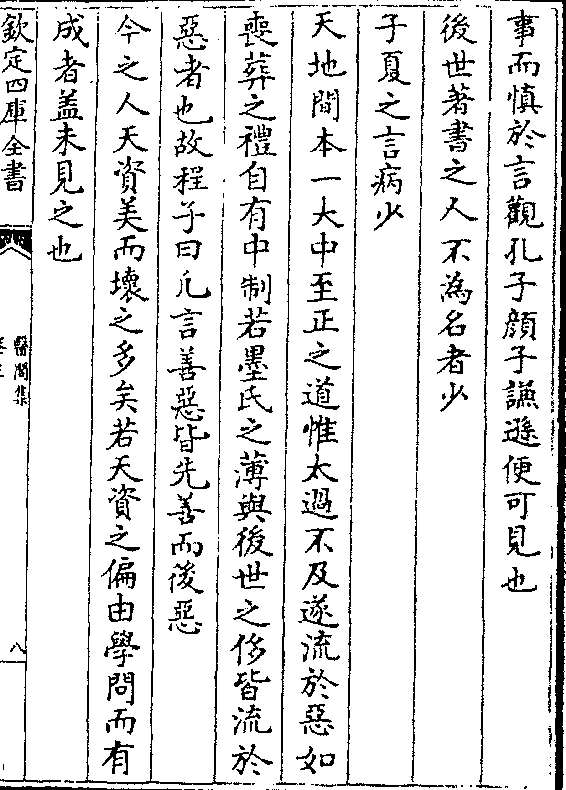 事而慎於言觀孔子顔子謙遜便可見也
後世著書之人不為名者少
子夏之言病少
天地間本一大中至正之道惟太過不及遂流於惡如
喪葬之禮自有中制若墨氏之薄與後世之侈皆流於
惡者也故程子曰凡言善惡皆先善而後惡
今之人天資美而壞之多矣若天資之偏由學問而有
成者盖未見之也
欽定四庫全書
醫閭集
八